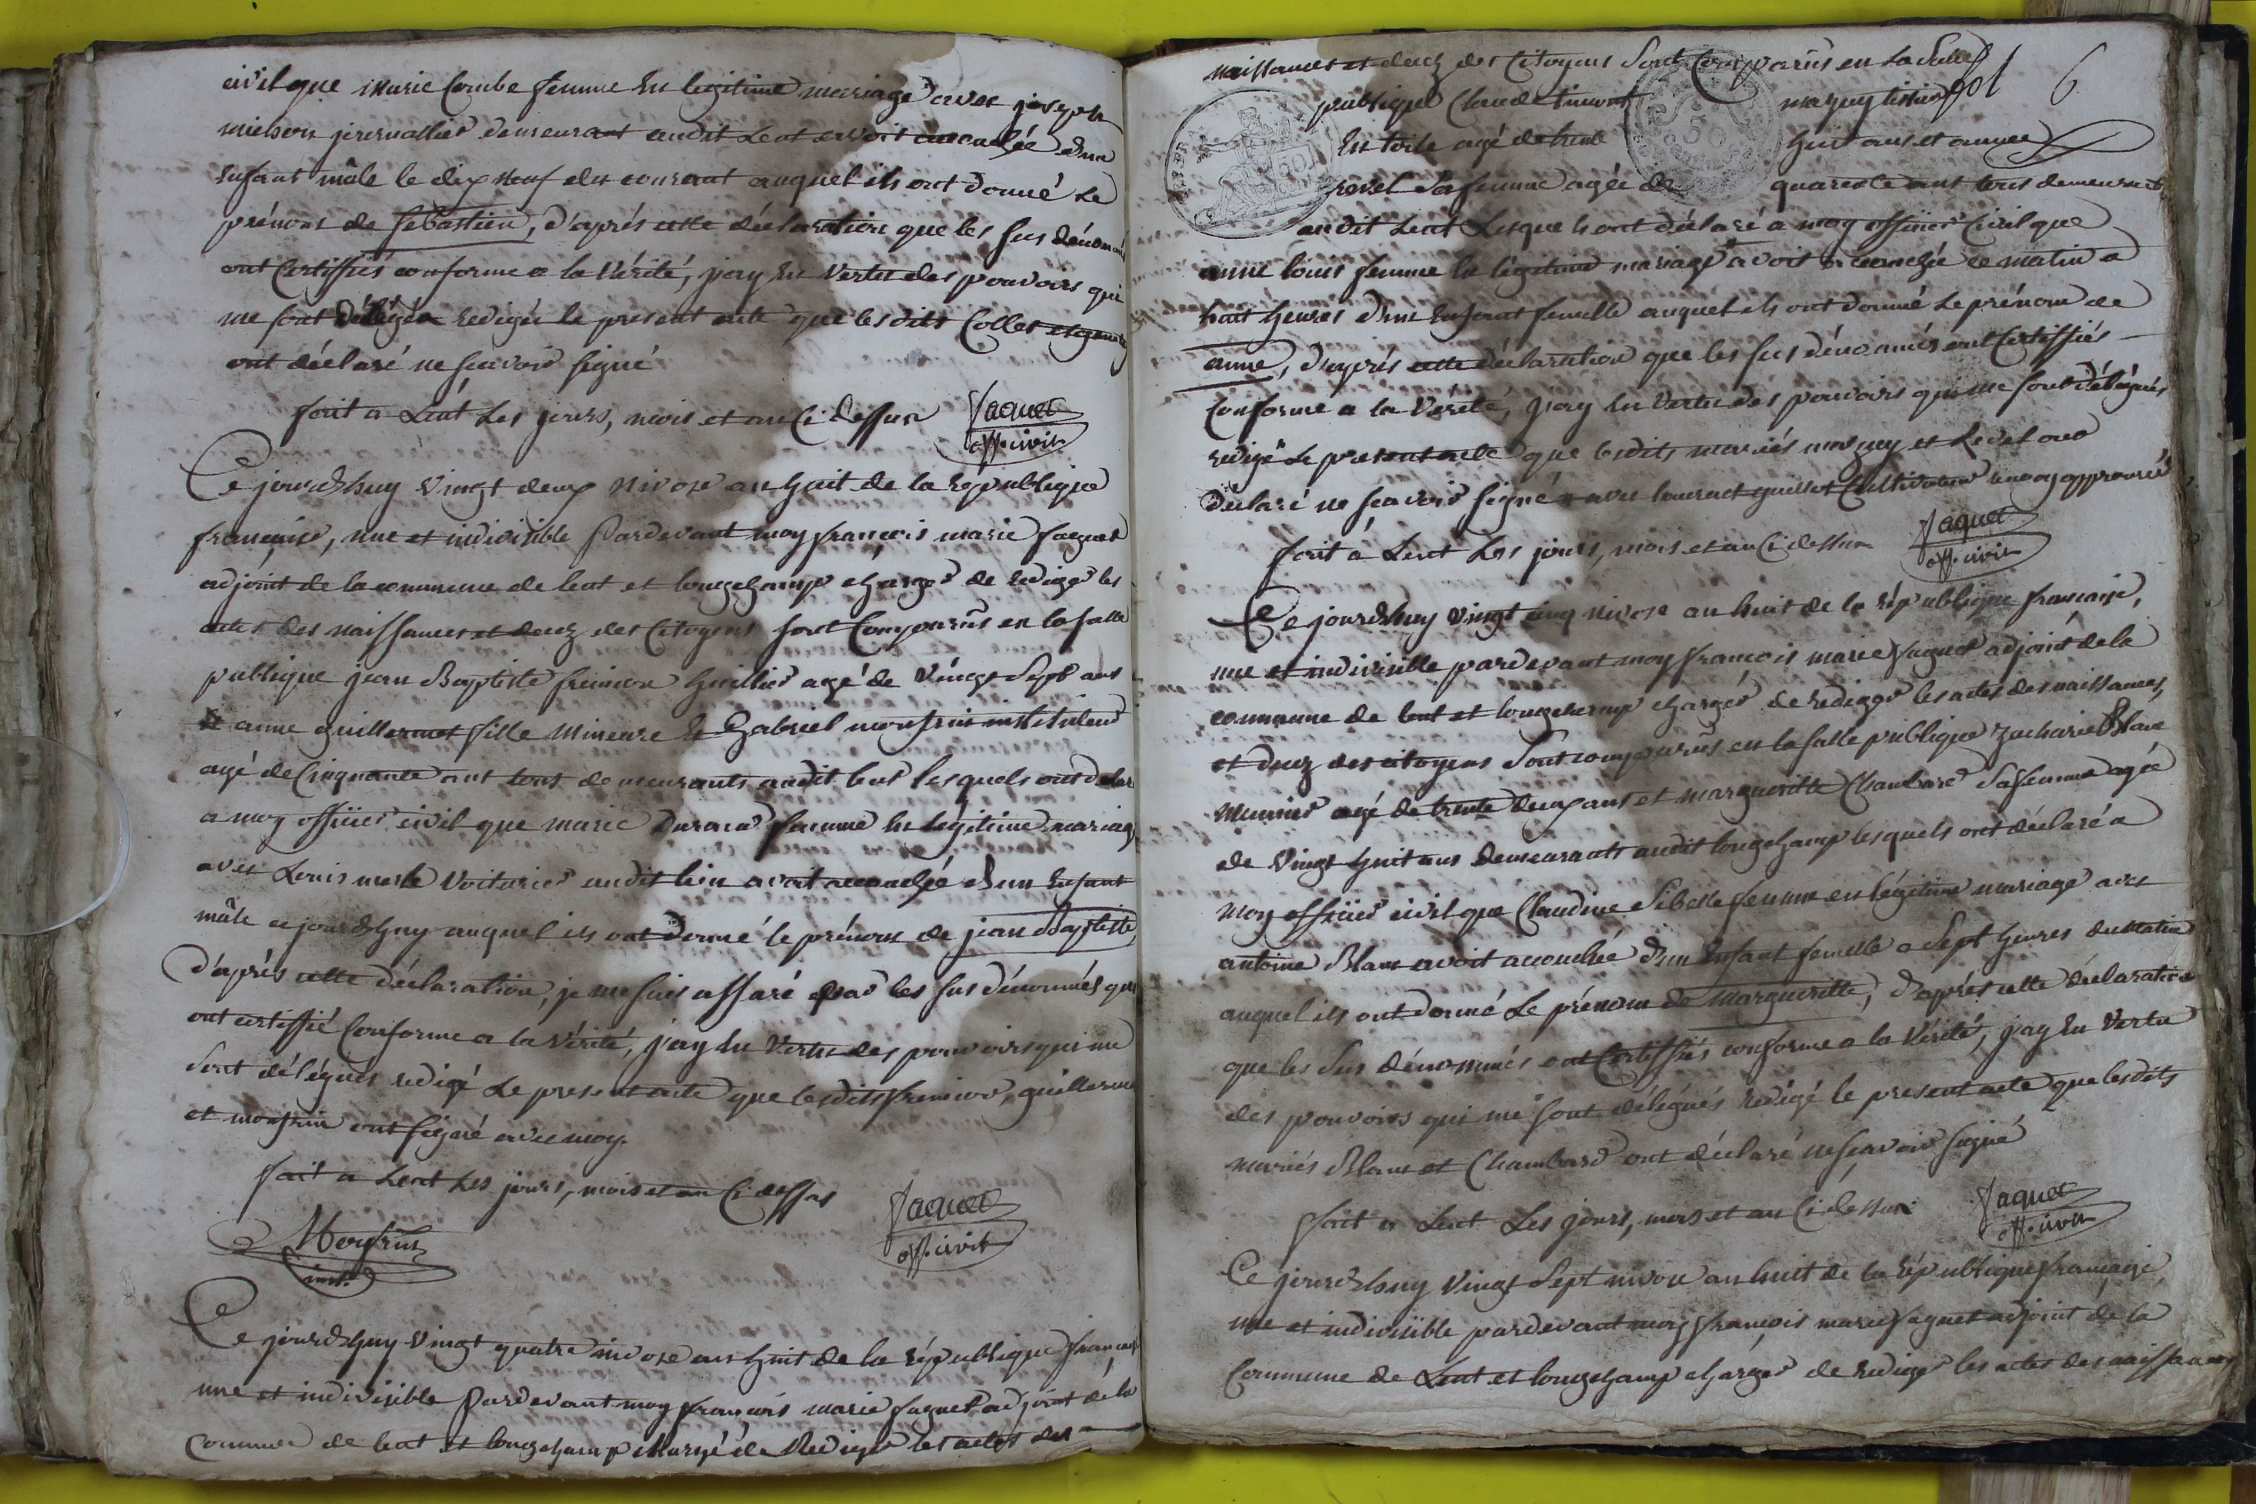 civil que marie Combe femme En legitime mariage avec joseph
michon journallier demeurant audit Lent avoit accouchée d'un
Enfant mâle le dix neuf du courant auquel ils ont donné Le
prénom de Sébastien, d'aprés cette déclaration que les sus dénommés
ont Certiffiés conforme a la Vérité, j'ay En Vertu des pouvoirs qui
me sont délégués redigée le présent acte que lesdits Collet
ont déclaré ne sçavoir signé
fait a Lent Les jours, mois et an Ci dessus Jaquet
off. civil
Ce jourd'huy Vingt deux nivose an huit de la republique
française, une et indivisible Pardevant moy françois marie Jaquet
adjoint de la commune de lent et longchamp chargé de rediger les
actes des naissances et decez des Citoyens sont Comparûs en la salle
publique jean Baptiste fremion huillier agé de Vingt Sept ans
et anne guillermet fille mineure Et Gabriel monfrin instituteur
agé de Cinquante ans tous demeurants audit lent lesquels ont déclaré
a moy officier civil que marie Durand femme En légitime mariage
avec Louis merle Voiturier audit lieu avoit accouchée d'un Enfant
mâle cejourd'huy auquel ils ont donné le prénom de jean Baptiste,
D'aprés cette déclaration, je me suis assuré par les sus dénommés qui
ont certiffié Conforme a la Vérité, j'ay En Vertu des pouvoirs qui me
Sont délégués redigé Le present acte que lesdits fremion, guillermet
et monfrin ont signé avec moy.
fait a Lent Les jours, mois et an Ci dessus Jaquet
off. civil
Monfrin
inst.
Ce jourd'huy Vingt quatre nivose an huit de la république française
une et indivisible Pardevant moy françois marie Jaquet adjoint de la
Commune de lent et longchamp chargé de Rediger les actes des
naissances et decez des Citoyens Sont Comparûs en la Salle fol 6
publique Claude
En toile agé de trente huit ans et anne
revel Sa femme agée de quarente ans tous demeurants
audit Lent Lesquels ont déclaré a moy officier Civil que
anne louis femme En légitime mariage avoit accouchée ce matin a
huit heures d'une Enfant femelle auquel ils ont donné Le prénom de
anne, d'aprés cette déclaration que les sus dénommés ont Certiffiés
Conforme a la Vérité, j'ay En Vertu des pouvoirs qui me sont délégués
redigé Le present acte que lesdits mariés et Revel ont
Déclaré ne sçavoir signé avec guillet Cultivateur approuvé
fait a Lent Les jours, mois et an Ci dessus Jaquet
off. civil
Ce jourd'huy Vingt cinq nivose an huit de la république française,
une et indivisible pardevant moy françois marie Jaquet adjoint de la
commune de lent et longchamp chargé de rediger les actes des naissances,
et decez des citoyens Sont comparûs en la salle publique Zacharie Blanc
Meunier agé de trente deux ans et margueritte Chambard Sa femme agée
de Vingt huit ans demeurants audit longchamp lesquels ont déclaré a
moy officier civil que Claudine Sibelle femme en légitime mariage avec
antoine Blanc avoit accouchée d'un Enfant femelle a Sept heures du matin
auquel ils ont donné Le prénom de Margueritte, d'aprés cette déclaration
que les Sus dénommés ont Certiffiés conforme a la Vérité, j'ay En Vertu
des pouvoirs qui me sont délégués redigé le present acte que lesdits
mariés Blanc et Chambard ont déclaré ne sçavoir signé
fait a Lent Les jours, mois et an Ci dessus Jaquet
off. civil
Ce jourd'huy Vingt Sept nivose an huit de la république française
une et indivisible pardevant moy françois marie Jaquet adjoint de la
Commune de Lent et longchamp chargé de rediger les actes des naissances